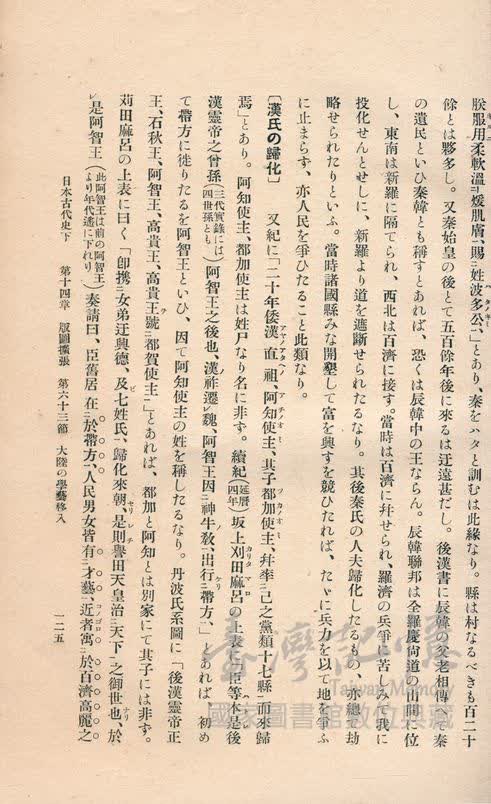 朕服用柔軟溫煖肌膚、賜姓波多公、」とあり、秦をハタと訓むは此緣なり。縣は村なるべきも百二十
餘とは夥多し。又秦始皇の後とて五百餘年後に來るは迂遠甚だし。後漢書に辰韓の父老相傳へて秦
の遺民といひ秦韓とも稱すとあれば、恐くは辰韓中の王ならん。辰韓聯邦は全羅慶尙道の山間に位
し、東南は新羅に隔てられ、西北は百濟に接す。當時は百濟に幷せられ、羅濟の兵爭に苦しみて我に
投化せんとせしに、新羅より道を遮斷せられたるなり。其後秦氏の人夫歸化したるもの、亦總て劫
略せられたりといふ。當時諸國縣みな開墾して富を興すを競ひたれば、たゞに兵力を以て地を爭ふ
に止まらず、亦人民を爭ひたること此類なり。
〔漢氏の歸化〕 又紀に「二十年倭漢直祖、阿知使主、其子都加使主、幷率己之黨類十七縣而來歸
焉」とあり。阿知使主、都加使主は姓尸なり名に非ず。續紀(延曆四年)坂上刈田麻呂の上表に「臣等本是後
漢靈帝之曾孫(三代實錄には四世孫とも)阿智王之後也、漢祚遷魏、阿智王因神牛敎、出行帶方、」とあれば、初め
て帶方に徙りたるを阿智王といひ、因て阿知使主の姓を稱したるなり。丹波氏系圖に「後漢靈帝正
王、石秋王、阿智王、高貴王、高貴王號都賀使主」とあれば、都加と阿知とは別家にて其子には非ず。
刈田麻呂の上表に曰く「卽携女弟迂興德、及七姓氏、歸化來朝、是則譽田天皇治天下之御世也、於
是阿智王(此阿智王は前の阿智王より年代遙に下れり)奏請曰、臣舊居在於帶方、人民男女皆有才藝、近者寓於百濟高麗之
日本古代史下 第十四章 版圖擴張 第六十三節 大陸の學藝移入 一二五
臺灣記憶
Taiwan Memory
國家圖書館數位典藏